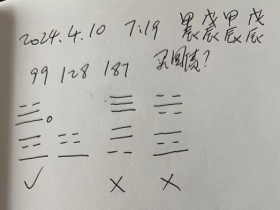 2024.4.10 7:19 甲戊甲戊
辰辰辰辰
99 128 187 买国债?
✓ × ×